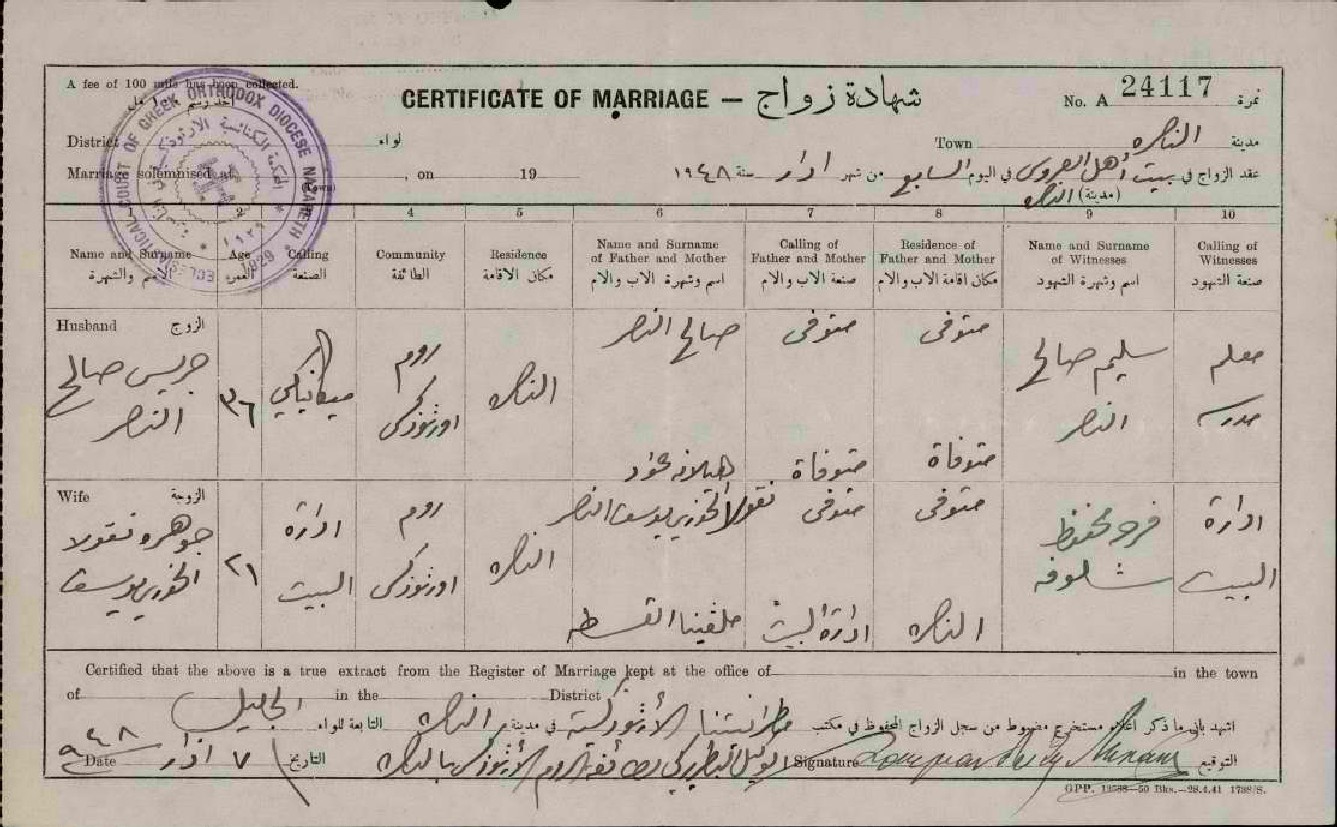 A fee of 100 mils has been collected.
CERTIFICATE OF MARRIAGE — شهادة زواج
No. A 24117 نمرة
District لواء
Town الناصره مدينة
Marriage solemnised at , on 19
(town)
عقد الزواج في بيت أهل العروس في اليوم السابع من شهر اذار سنة ١٩٤٨
(مدينة) الناصره
ECCLESIASTICAL COURT OF GREEK ORTHODOX DIOCESE NAZARETH * 1929
١٩٢٩
2 4 5 6 7 8 9 10
Name and Surname الاسم والشهرة
Age العمر
Calling الصنعة
Community الطائفة
Residence مكان الاقامة
Name and Surname of Father and Mother اسم وشهرة الاب والام
Calling of Father and Mother صنعة الاب والام
Residence of Father and Mother مكان اقامة الاب والام
Name and Surname of Witnesses اسم وشهرة الشهود
Calling of Witnesses صنعة الشهود
Husband الزوج
جريس صالح
النصر
٣٦
ميكانيكي
روم
اورثوذكس
الناصره
صالح النصر
متوفى
متوفى
سليم صالح
النصر
معلم
مدرسه
هيلانه
متوفاة
متوفاة
Wife الزوجة
جوهره نقولا
الخوري يوسف
٢١
ادارة
البيت
روم
اورثوذكس
الناصره
نقولا الخوري يوسف النصر
متوفى
متوفى
فرح محفوظ
شلوفه
ادارة
البيت
ادارة البيت
الناصره
Certified that the above is a true extract from the Register of Marriage kept at the office of in the town
of in the District
اشهد بان ما ذكر اعلاه مستخرج مضبوط من سجل الزواج المحفوظ في مكتب مطرانيتنا الأرثوذكسية في مدينة الناصره التابعة للواء الجليل
التوقيع Signature
الوكيل البطريركي لطائفة الروم الأرثوذكس بالناصره
التاريخ ٧ اذار ٩٤٨ Date
GPP. 12588—50 Bks.—28.4.41 1738/S.